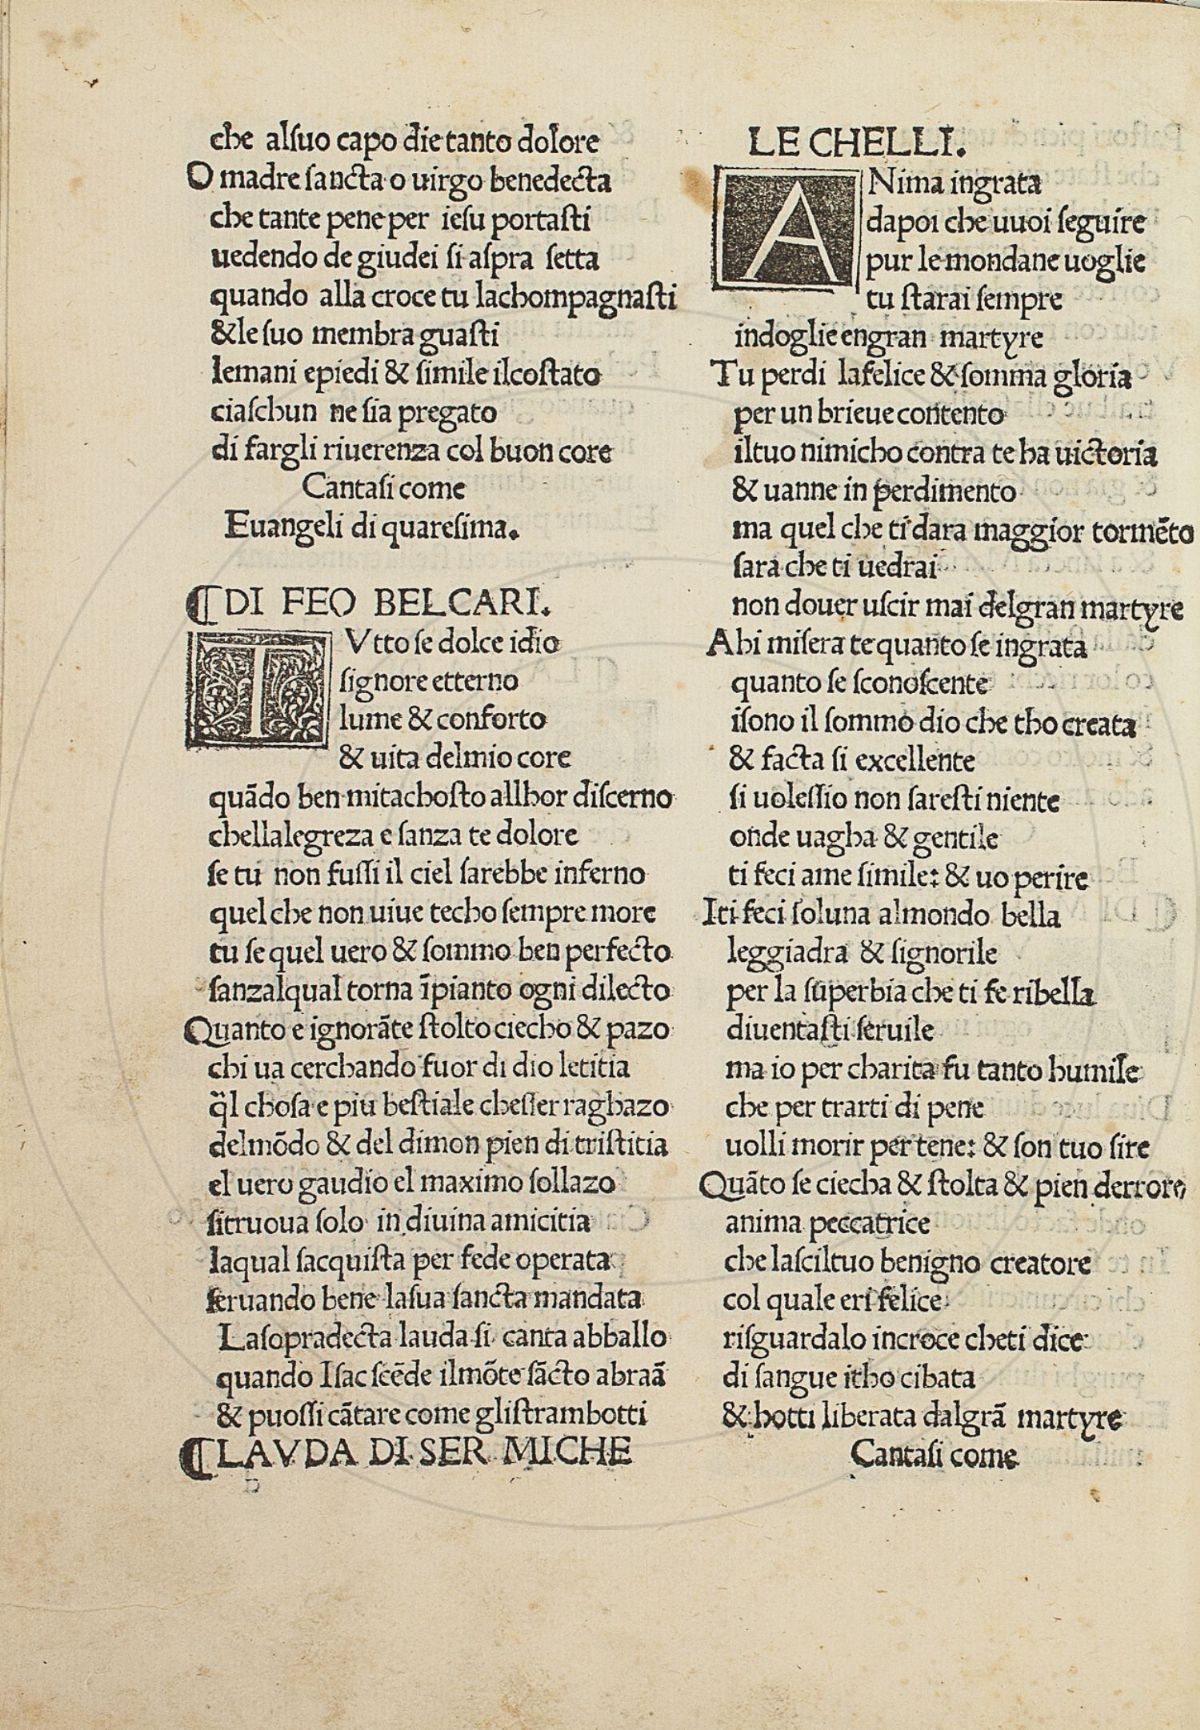 che alſuo capo die tanto dolore
O madre ſancta o uirgo benedecta
che tante pene per ieſu portaſti
uedendo de giudei ſi aſpra ſetta
quando alla croce tu lachompagnaſti
&le ſuo membra guaſti
lemani epiedi & ſimile ilcoſtato
ciaſchun ne ſia pregato
di fargli riuerenza col buon core
Cantaſi come
Euangeli di quareſima.
¶DI FEO BELCARI.
TVtto ſe dolce idio
ſignore etterno
lume & conforto
& uita delmio core
quādo ben mitachoſto allhor diſcerno
chellalegreza e ſanza te dolore
ſe tu non fuſſi il ciel ſarebbe inferno
quel che non uiue techo ſempre more
tu ſe quel uero & ſommo ben perfecto
ſanzalqual torna īpianto ogni dilecto
Quanto e ignorāte ſtolto ciecho & pazo
chi ua cerchando fuor di dio letitia
q̄l choſa e piu beſtiale cheſſer raghazo
delmōdo & del dimon pien di triſtitia
el uero gaudio el maximo ſollazo
ſitruoua ſolo in diuina amicitia
laqual ſacquiſta per fede operata
ſeruando bene laſua ſancta mandata
Laſopradecta lauda ſi canta abballo
quando Iſac ſcēde ilmōte ſācto abraā
& puoſſi cātare come gliſtrambotti
¶LAVDA DI SER MICHE
LE CHELLI.
ANima ingrata
dapoi che uuoi ſeguire
pur le mondane uoglie
tu ſtarai ſempre
indoglie engran martyre
Tu perdi lafelice & ſomma gloria
per un brieue contento
iltuo nimicho contra te ha uictoria
& uanne in perdimento
ma quel che ti dara maggior tormēto
ſara che ti uedrai
non douer uſcir mai delgran martyre
Ahi miſera te quanto ſe ingrata
quanto ſe ſconoſcente
iſono il ſommo dio che tho creata
& facta ſi excellente
ſi uoleſſio non ſareſti niente
onde uagha & gentile
ti feci ame ſimile: & uo perire
Iti feci ſoluna almondo bella
leggiadra & ſignorile
per la ſuperbia che ti fe ribella
diuentaſti ſeruile
ma io per charita fu tanto humile
che per trarti di pene
uolli morir per tene: & ſon tuo ſire
Quāto ſe ciecha & ſtolta & pien derrore
anima peccatrice
che laſciltuo benigno creatore
col quale eri felice
riſguardalo incroce cheti dice
di ſangue itho cibata
& hotti liberata dalgrā martyre
Cantaſi come